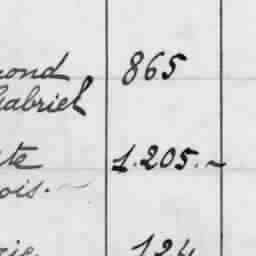 mond 865
Gabriel
te 1.205.~
ois. ~
124